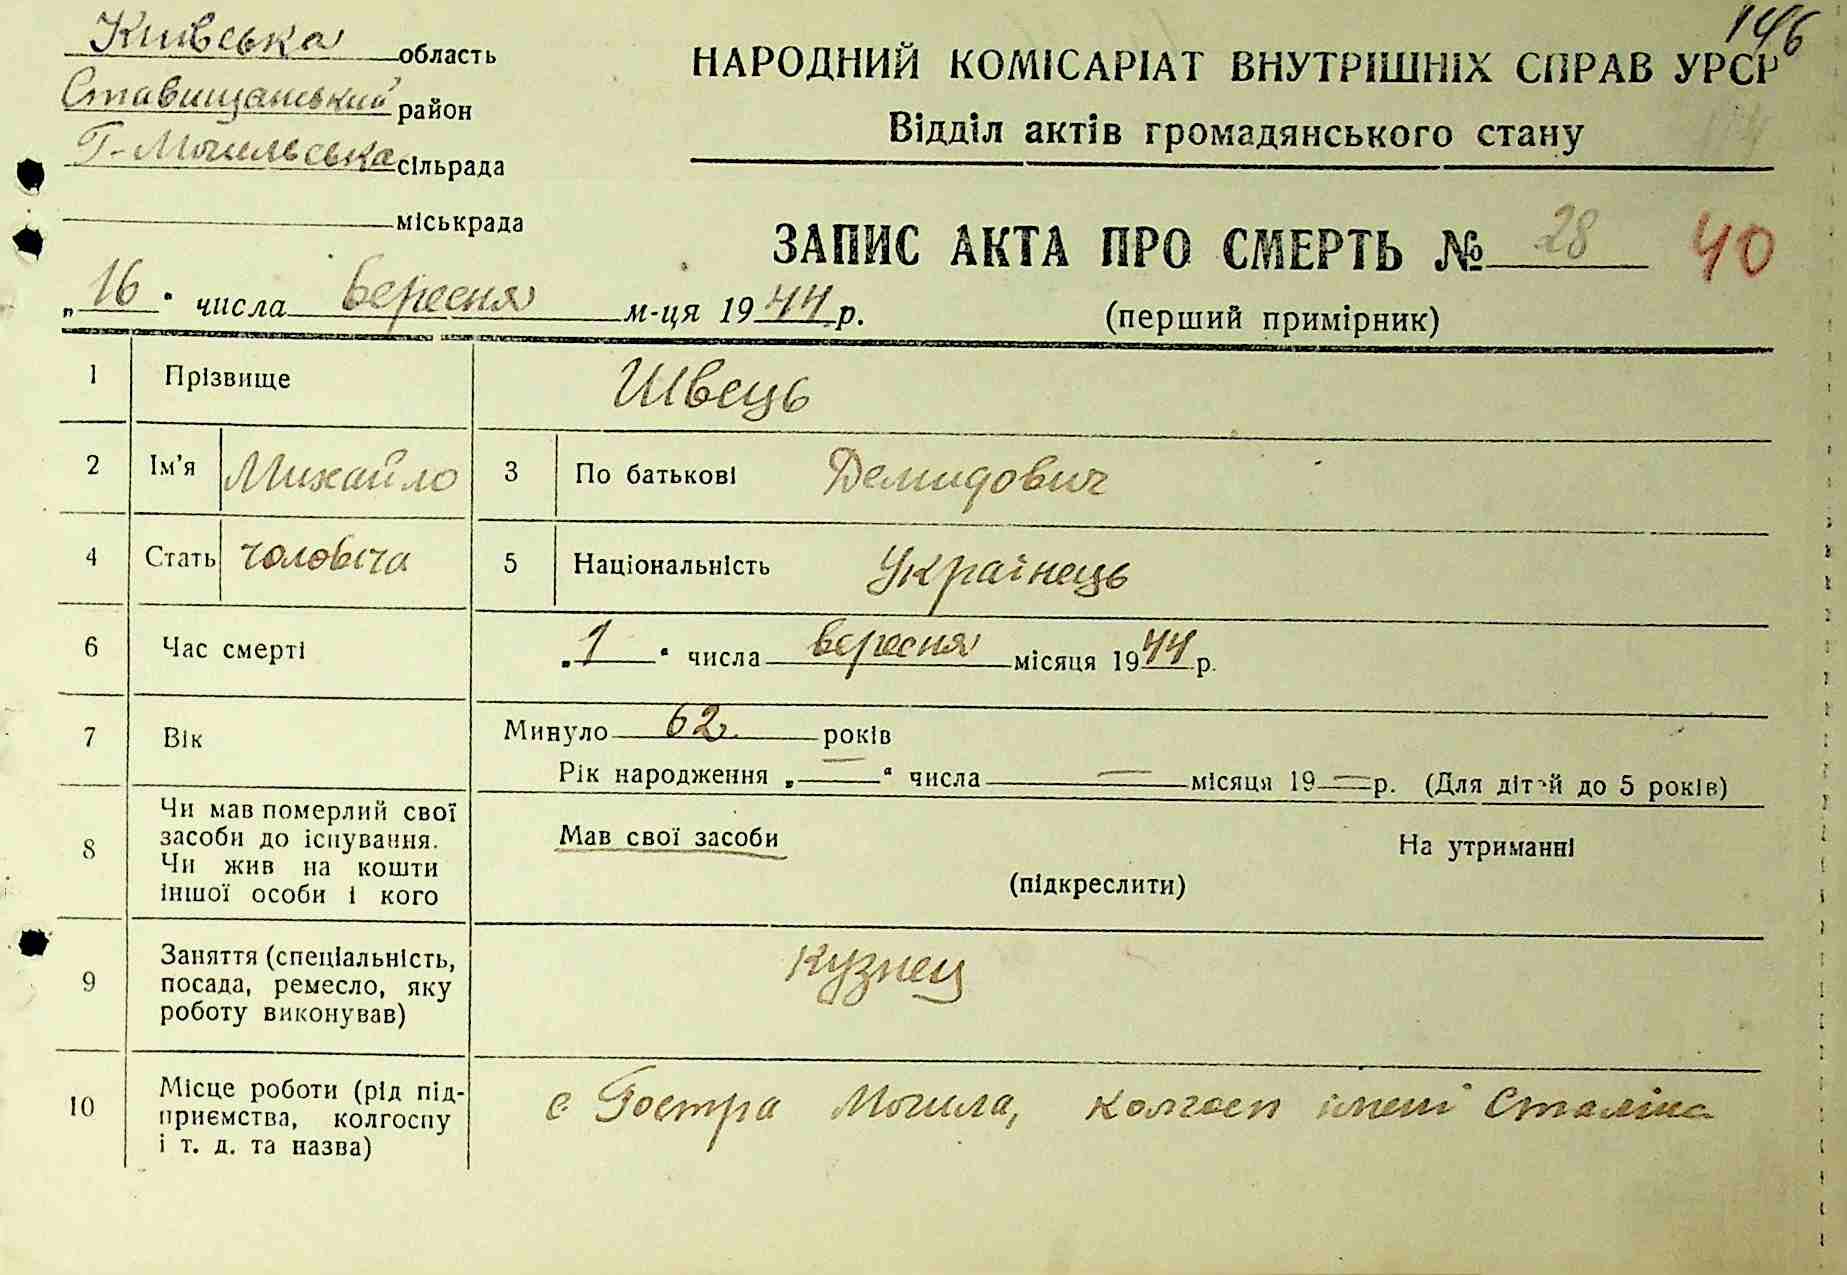 146
Київська область
Ставищанський район
Г-Могильська сільрада
міськрада
НАРОДНИЙ КОМІСАРІАТ ВНУТРІШНІХ СПРАВ УРСР
Відділ актів громадянського стану
ЗАПИС АКТА ПРО СМЕРТЬ № 28 40
„16" числа вересня м-ця 1944 р.
(перший примірник)
1 Прізвище Швець
2 Ім'я Михайло 3 По батькові Демидович
4 Стать чоловіча 5 Національність Українець
6 Час смерті „1" числа вересня місяця 1944 р.
7 Вік Минуло 62 років
Рік народження „—" числа — місяця 19 — р. (Для дітей до 5 років)
8 Чи мав померлий свої
засоби до існування.
Чи жив на кошти
іншої особи і кого
Мав свої засоби На утриманні
(підкреслити)
9 Заняття (спеціальність,
посада, ремесло, яку
роботу виконував)
кузнец
10 Місце роботи (рід під-
приємства, колгоспу
і т. д. та назва)
с Гостра Могила, колгосп імені Сталіна